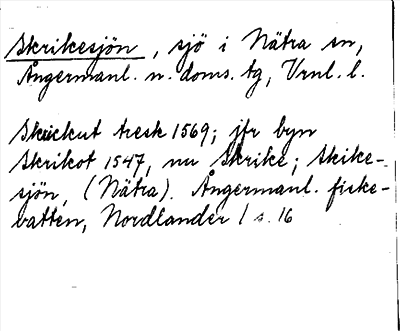 Skrikesjön, sjö i Nätra sn,
Ångermanl. n. doms. tg, Vrnl. l.
Skickut tresk 1569; jfr byn
Skrikot 1547, nu Skrike; Skike-
sjön, (Nätra). Ångermanl. fiske-
vatten, Nordlander I s. 16